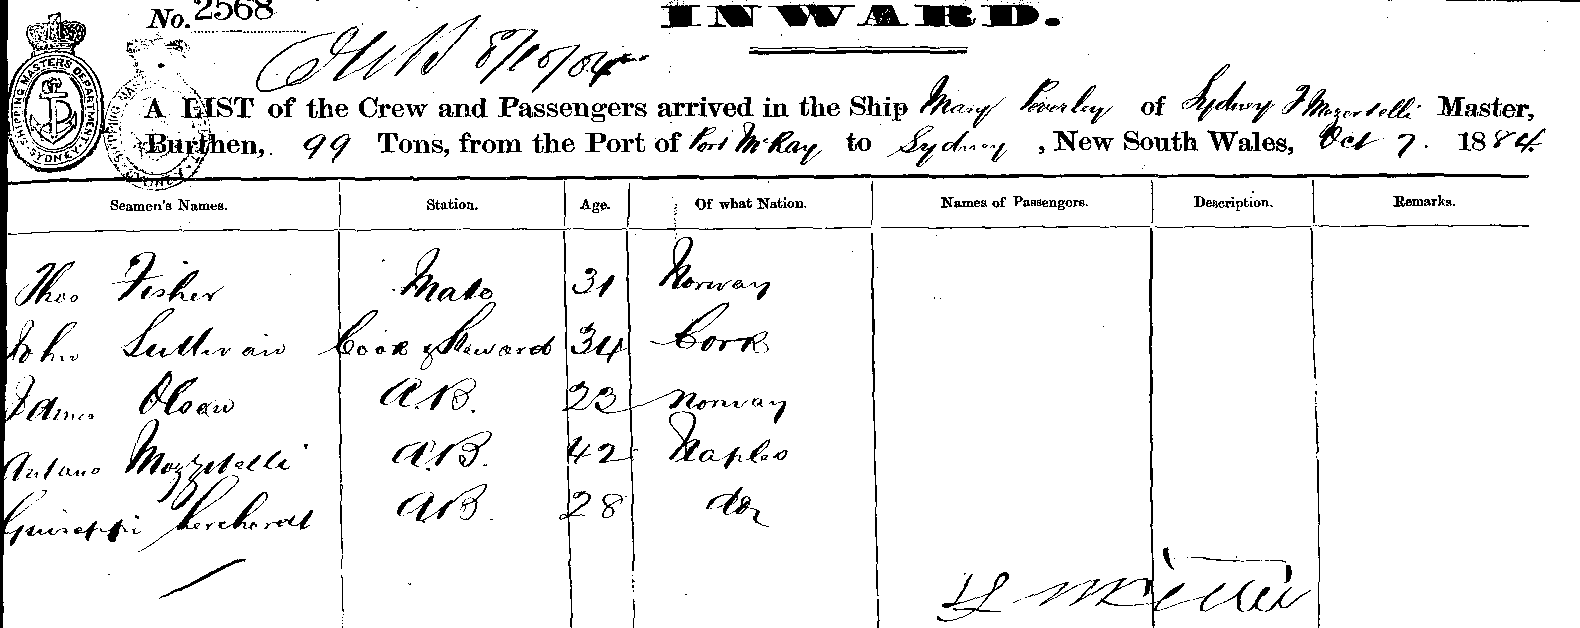 No. 2568
INWARD.
8/10/84
SHIPPING MASTERS DEPARTMENT
SYDNEY
A LIST of the Crew and Passengers arrived in the Ship Mary Peverley of Sydney F Mozzetelli Master,
Burthen, 99 Tons, from the Port of Port McKay to Sydney, New South Wales, Oct 7. 1884
Seamen's Names. Station. Age. Of what Nation. Names of Passengers. Description. Remarks.
Thos Fisher Mate 31 Norway
John Sullivan Cook & Steward 34 Cork
James Olsen A.B. 23 Norway
Antano Mozzetelli A.B. 42 Naples
Guiseppi A.B. 28 do